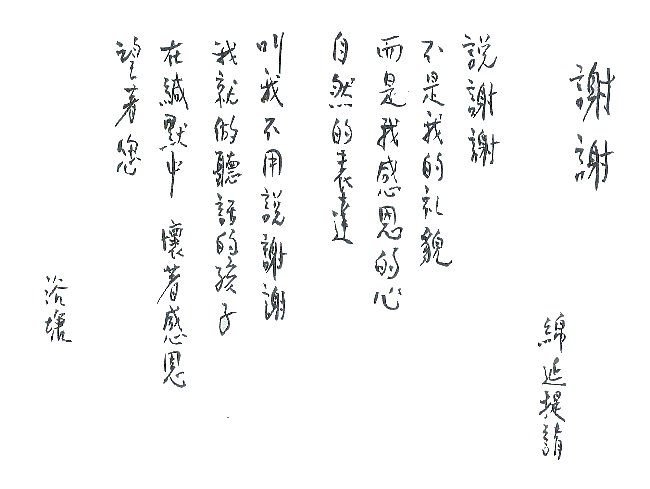 謝謝
綿延提請
說謝謝
不是我的礼貌
而是我感恩的心
自然的表達
叫我不用說謝謝
我就做聽話的孩子
在緘默中 懷著感恩
望著您
浴塘